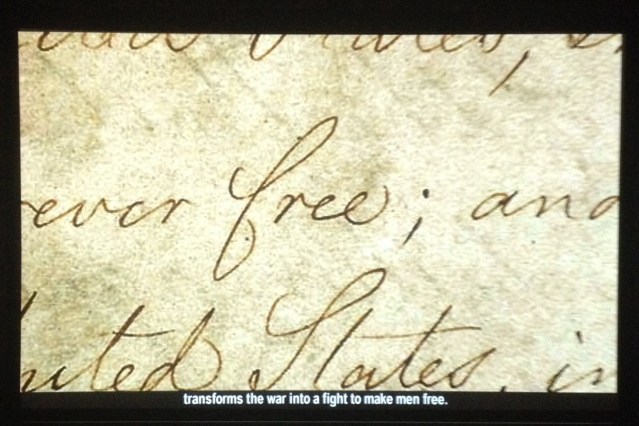 ever free; and
ited States, in
transforms the war into a fight to make men free.